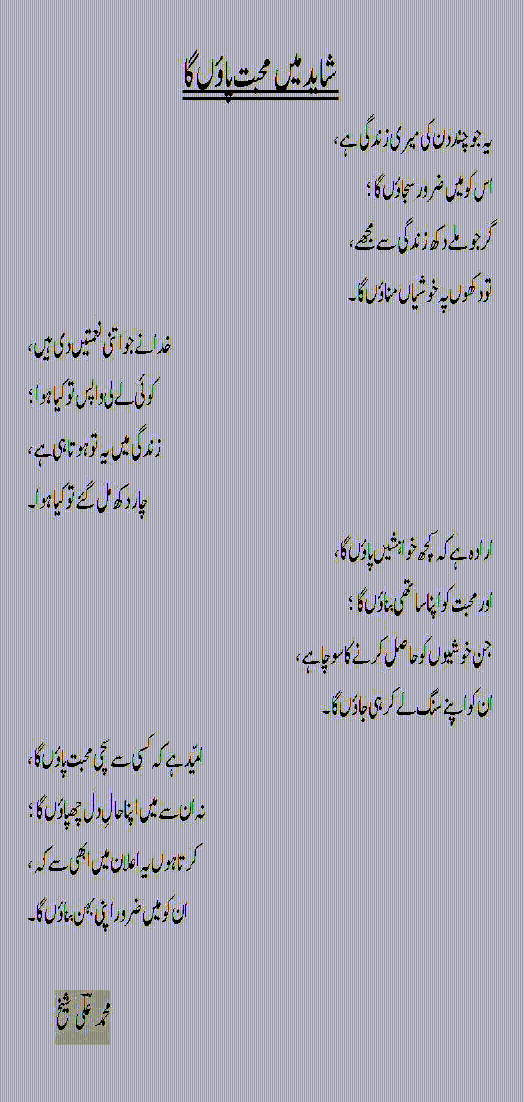 شاید میں محبت پاؤں گا
یہ جو چند دن کی میری زندگی ہے،
اس کو میں ضرور سجاؤں گا؛
گر جو ملے دکھ زندگی سے مجھے،
تو دکھوں پہ خوشیاں مناؤں گا۔
خدا نے جو اتنی نعمتیں دی ہیں،
کوئی لے لی واپس تو کیا ہوا؛
زندگی میں یہ تو ہوتا ہی ہے،
چار دکھ مل گئے تو کیا ہوا۔
ارادہ ہے کہ کچھ خواہشیں پاؤں گا،
اور محبت کو اپنا ساتھی بناؤں گا؛
جن خوشیوں کو حاصل کرنے کا سوچا ہے،
ان کو اپنے سنگ لے کر ہی جاؤں گا۔
امّید ہے کہ کسی سے سچی محبت پاؤں گا،
نہ ان سے میں اپنا حالِ دل چھپاؤں گا؛
کرتا ہوں یہ اعلان میں ابھی سے کہ،
ان کو میں ضرور اپنی بہن بناؤں گا۔
محمد علی شیخ